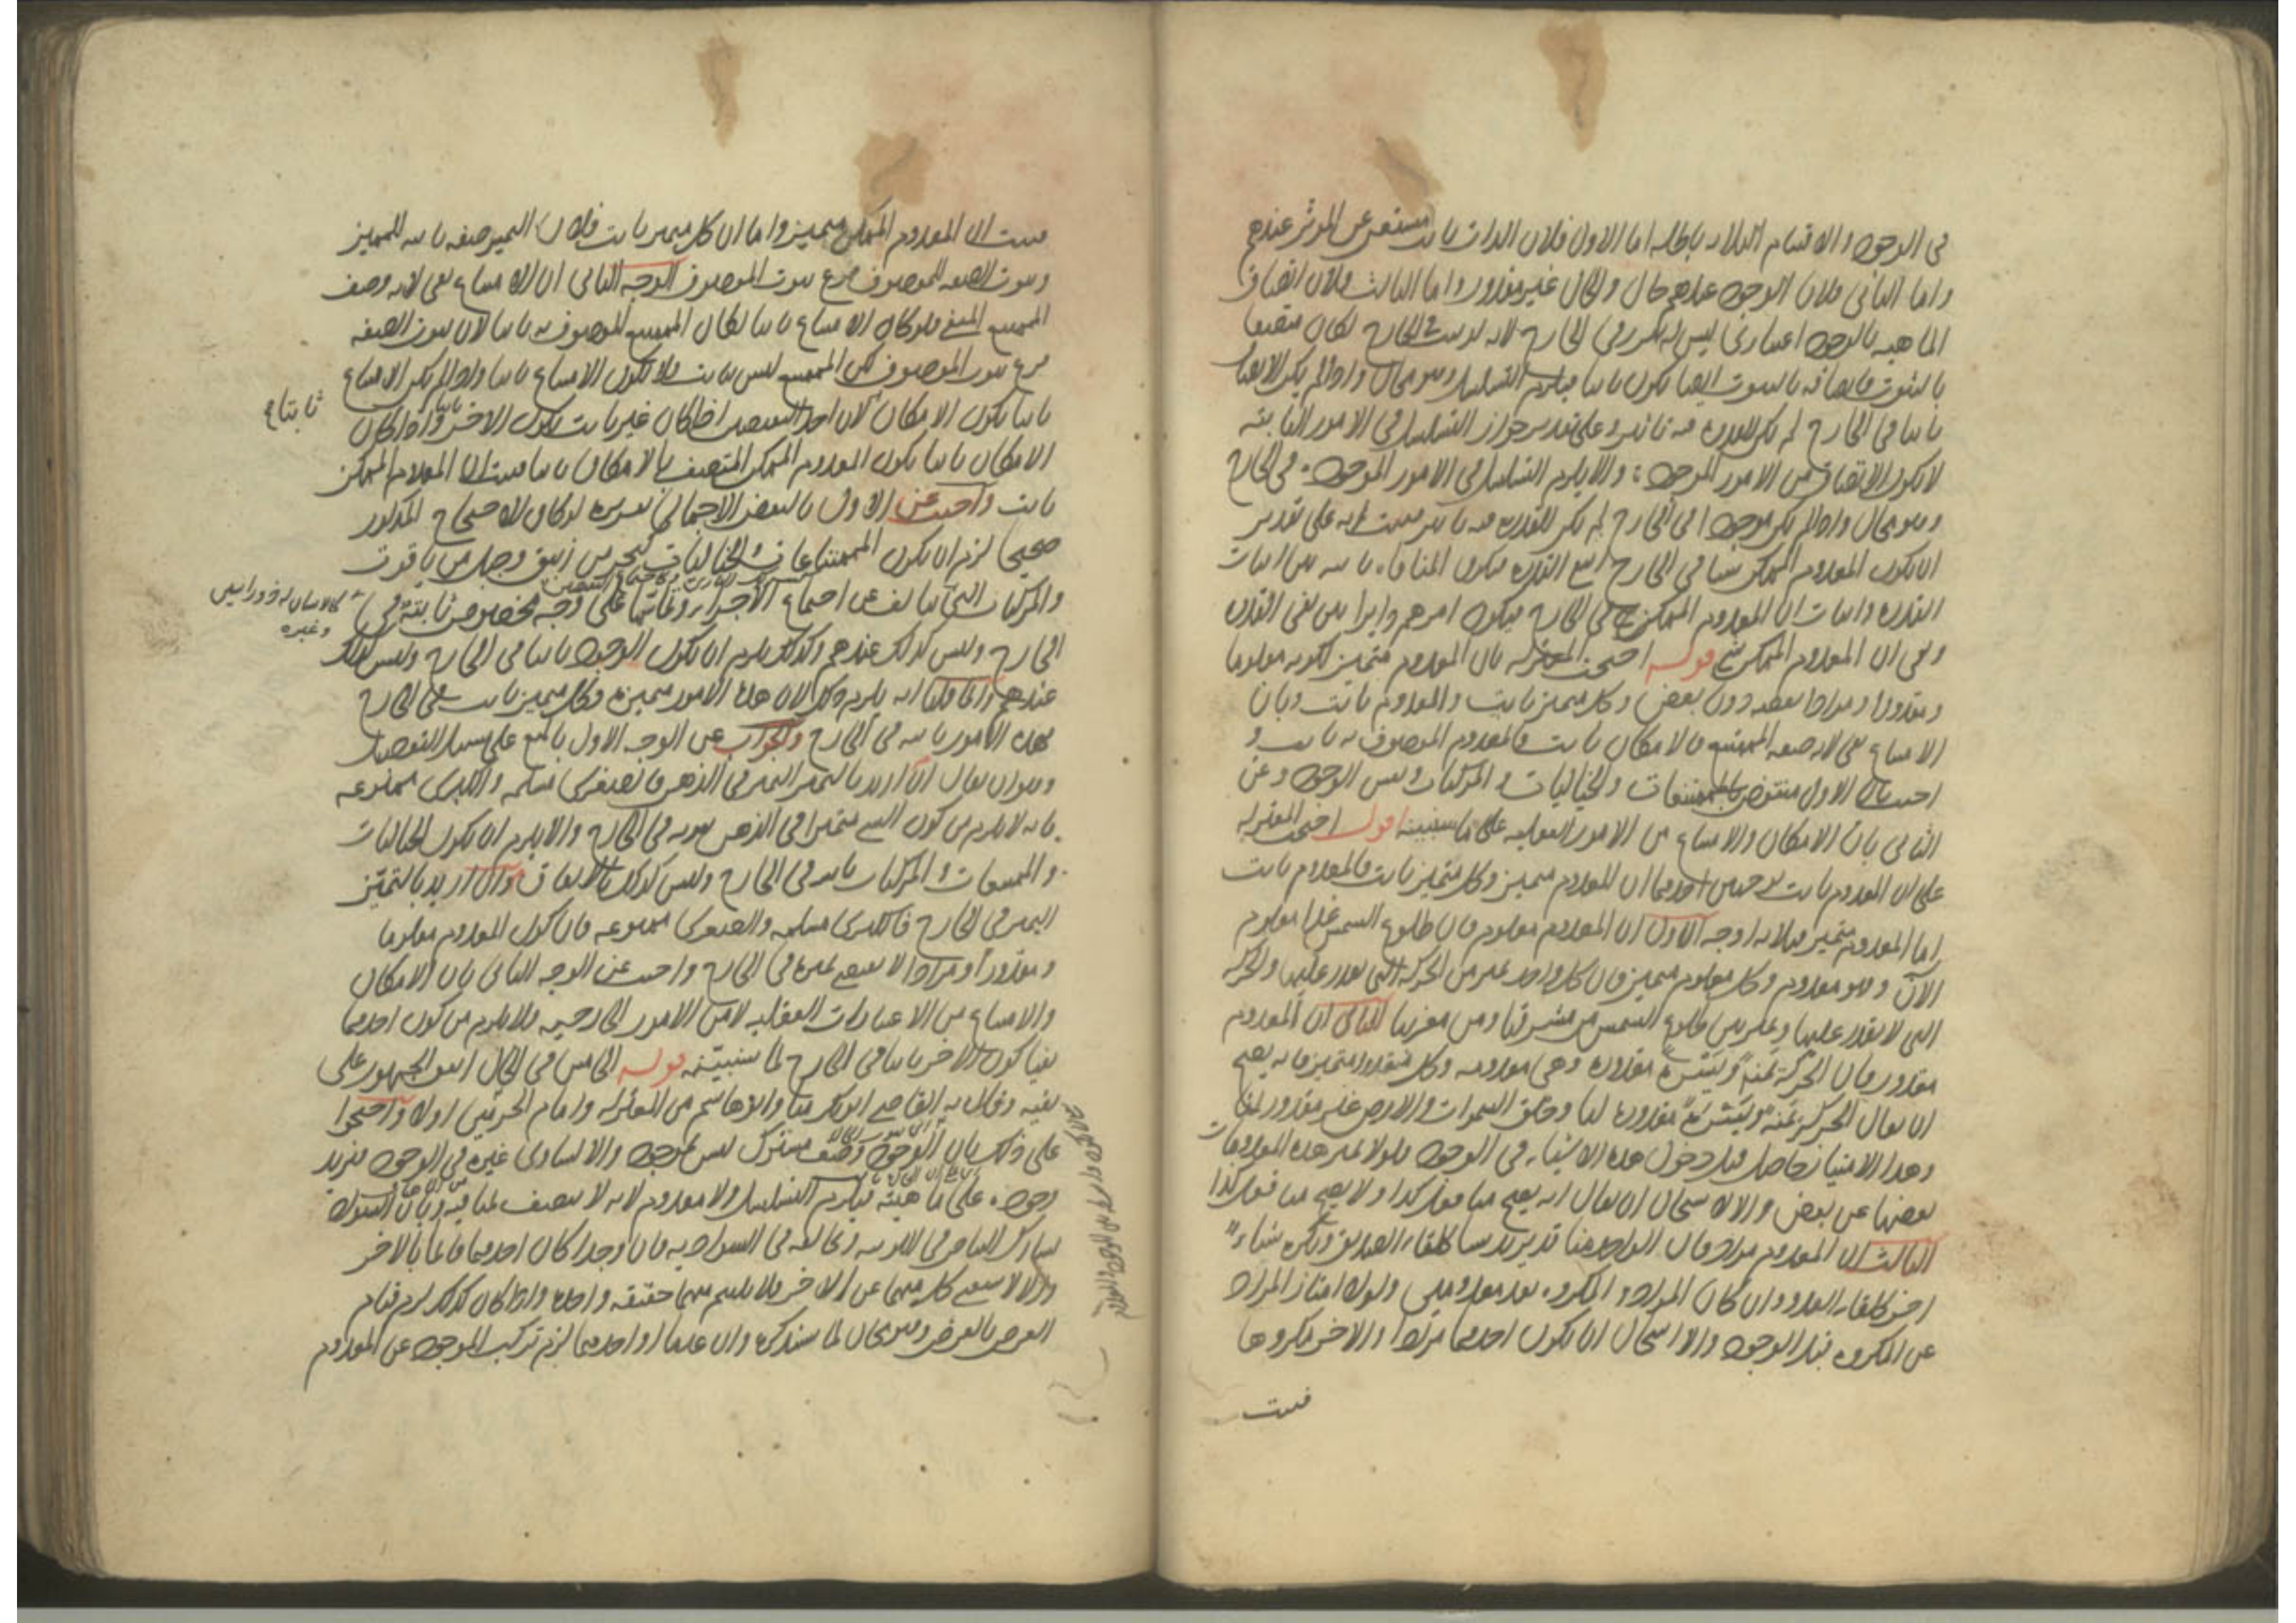 في الوجود والاقسام الثلاثة باطلة اما الاول فلان الذات ثابت مستغن عن المؤثر عندهم
واما الثاني فلان الوجود عندهم حال والحال غير مقدور واما الثالث فلان اتصاف
الماهية بالوجود اعتباري ليس له تقرر في الخارج لانه لو ثبت في الخارج لكان متصفا
بالثبوت فاتصافه بالثبوت ايضا يكون ثابتا فيلزم التسلسل وهو محال واذا لم يكن الاتصاف
ثابتا في الخارج لم يكن للقدرة فيه تاثير وعلى تقدير جواز التسلسل في الامور الثابتة
لا يكون الاتصاف من الامور الموجودة والا يلزم التسلسل في الامور الموجودة في الخارج
وهو محال واذا لم يكن موجودا في الخارج لم يكن للقدرة فيه تاثير فثبت انه على تقدير
ان يكون المعدوم الممكن شيئا في الخارج امتنع القدرة فيكون المنافاة ثابتة بين اثبات
القدرة واثبات ان المعدوم الممكن شيء في الخارج فيكون امرهم دايرا بين نفي القدرة
ونفي ان المعدوم الممكن شيء قوله احتجت المعتزلة بان المعدوم متميز لكونه معلوما
ومقدورا ومرادا بعضه دون بعض وكل متميز ثابت والمعدوم ثابت وبان
الامتناع نفي لانه صفة الممتنع فالامكان ثابت فالمعدوم الموصوف به ثابت و
اجيب بان الاول منقوض بالممتنعات والخياليات والمركبات ونفس الوجود وعن
الثاني بان الامكان والامتناع من الامور العقلية على ما سنبينه اقول احتجت المعتزلة
على ان المعدوم ثابت بوجهين احدهما ان المعدوم متميز وكل متميز ثابت فالمعدوم ثابت
اما المعدوم متميز فلثلاثة اوجه الاول ان المعدوم معلوم فان طلوع الشمس غدا معلوم
الآن وهو معدوم وكل معلوم متميز فان كل واحد يميز بين الحركة التي يقدر عليها والحركة
التي لا يقدر عليها ويميز بين طلوع الشمس من مشرقها ومن مغربها الثاني ان المعدوم
مقدور فان الحركة يمنة ويسرة مقدورة وهي معدومة وكل مقدور متميز فانه يصح
ان يقال الحركة يمنة ويسرة مقدورة لنا وخلق السموات والارض غير مقدور لنا
وهذا الامتياز حاصل قبل دخول هذه الاشياء في الوجود فلولا تميز هذه المعدومات
بعضها عن بعض والا لاستحال ان يقال انه يصح منا فعل كذا ولا يصح منا فعل كذا
الثالث ان المعدوم مراد فان الواحد منا قد يريد شيئا كلقاء الصديق ويكره شيئا
اخر كلقاء العدو وان كان المراد والمكروه بعد معدومين ولولا امتياز المراد
عن المكروه قبل الوجود والا استحال ان يكون احدهما مرادا والاخر مكروها
فثبت
فثبت ان المعدوم الممكن متميز واما ان كل متميز ثابت فلان التميز صفة ثابتة للمتميز
وثبوت الصفة للموصوف فرع ثبوت الموصوف الوجه الثاني ان الامتناع نفي لانه وصف
الممتنع المنفي فلو كان الامتناع ثابتا لكان الممتنع الموصوف به ثابتا لان ثبوت الصفة
فرع ثبوت الموصوف لكن الممتنع ليس بثابت فلا يكون الامتناع ثابتا واذا لم يكن الامتناع
ثابتا يكون الامكان ثابتا لان احد النقيضين اذا كان غير ثابت يكون الاخر ثابتا واذا كان
الامكان ثابتا يكون المعدوم الممكن المتصف بالامكان ثابتا فثبت ان المعدوم الممكن
ثابت واجيب عن الاول بالنقض الاجمالي تقريره لو كان الاحتجاج المذكور
صحيحا لزم ان يكون الممتنعات والخياليات كبحر من زيبق وجبل من ياقوت
والمركبات التي تتالف عن اجتماع الاجزاء وتماسها على وجه مخصوص ثابتة في
الخارج وليس كذلك عندهم وكذلك يلزم ان يكون الوجود ثابتا في الخارج وليس كذلك
عندهم وانما قلنا انه يلزم ذلك لان هذه الامور متميزة وكل متميز ثابت في الخارج
فهذه الامور ثابتة في الخارج والجواب عن الوجه الاول بالمنع على سبيل التفصيل
وهو ان يقال ان اريد بالتميز التميز في الذهن فالصغرى مسلمة والكبرى ممنوعة
فانه لا يلزم من كون الشيء متميزا في الذهن ثبوته في الخارج والا يلزم ان يكون الخياليات
والممتنعات والمركبات ثابتة في الخارج وليس كذلك بالاتفاق وان اريد بالتميز
التميز في الخارج فالكبرى مسلمة والصغرى ممنوعة فان كون المعدوم معلوما
ومقدورا ومرادا لا يقتضي تميزه في الخارج واجيب عن الوجه الثاني بان الامكان
والامتناع من الاعتبارات العقلية لا من الامور الخارجية فلا يلزم من كون احدهما
نفيا كون الاخر ثابتا في الخارج لما سنبينه قوله الخامس في الحال اتفق الجمهور على
نفيه وقال به القاضي ابو بكر منا وابو هاشم من المعتزلة وامام الحرمين اولا واحتجوا
على ذلك بان الوجود وصف مشترك ليس بموجود والا لساوى غيره في الوجود فيزيد
وجوده على ماهيته فيلزم التسلسل ولا معدوم لانه لا يتصف بمنافيه وبان السواد
يشارك البياض في اللونية ويخالفه في السوادية فان وجدا كان احدهما قائما بالاخر
والا لاستغنى كل منهما عن الاخر فلا يلتئم منهما حقيقة واحدة واذا كان كذلك لزم قيام
العرض بالعرض وهو محال لما سنذكره وان عدما او احدهما لزم تركب الموجود عن المعدوم